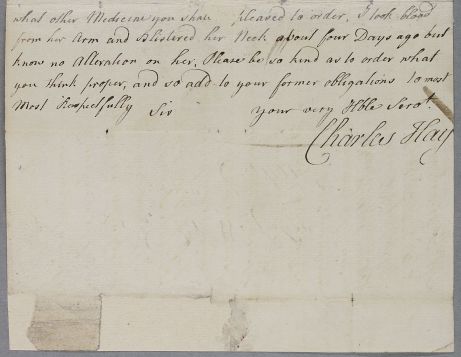 what other Medicine you shall pleased to order, I took blood
from her Arm and Blistered her Neck about four Days ago but
know no Alteration on her, Please be so kind as to order what
you think proper, and so add to your former obligations to most
Most Respectfully Sir your very Hble Servt.
Charles Hay